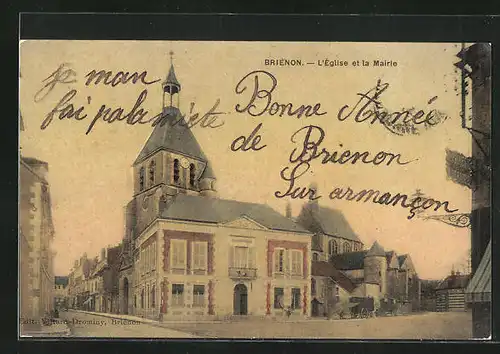 BRIENON. — L'Église et la Mairie
je man
fai pala miete
Bonne Année
de Brienon
Sur armançon
Edit. Villard-Drominy, Brienon